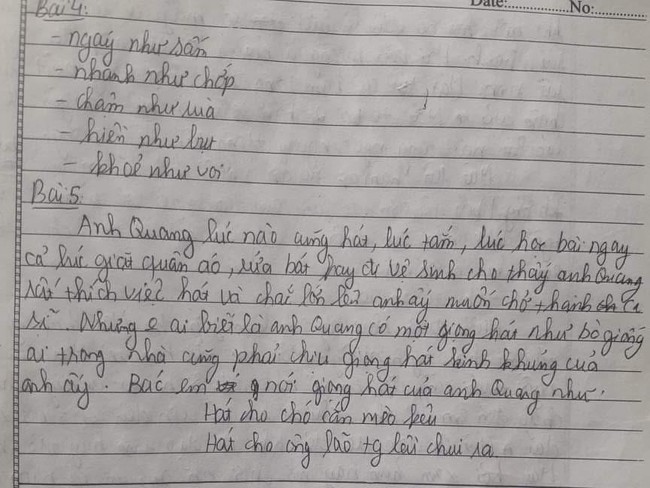 Date:............... No:...............
Bài 4:
- ngáy như sấm
- nhanh như chớp
- chậm như rùa
- hiền như bụt
- khoẻ như voi
Bài 5
Anh Quang lúc nào cũng hát, lúc tắm, lúc học bài ngay
cả lúc giặt quần áo, rửa bát hay đi vệ sinh cho thấy anh Quang
rất thích việc hát và chắc lớn lên anh ấy muốn trở thành ca
sĩ. Nhưng e ai biết là anh Quang có một giọng hát như bò giống
ai trong nhà cũng phải chịu giọng hát kinh khủng của
anh ấy. Bác em nói giọng hát của anh Quang như:
Hát cho chó cắn mèo kêu
Hát cho ông lão tg lỗi chui ra